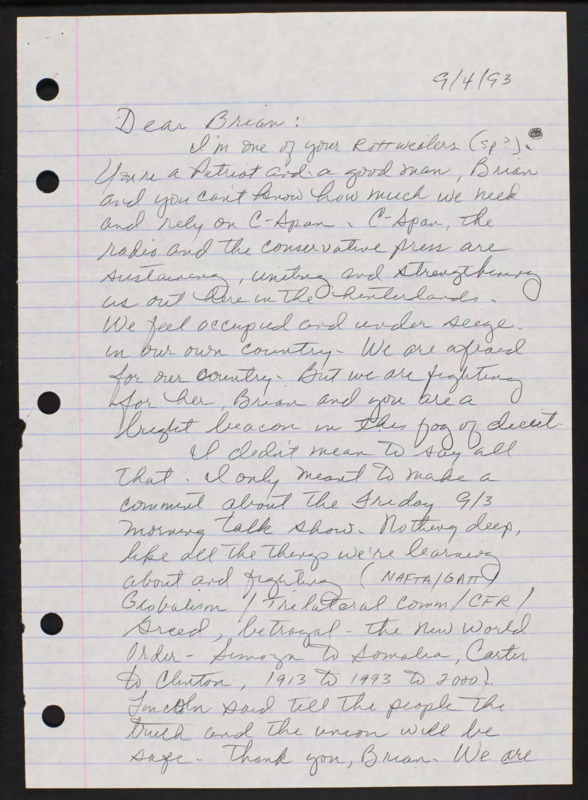 9/4/93
Dear Brian:
I'm one of your Rottweilers (sp?).
You're a Patriot and a good man, Brian
and you can't know how much we need
and rely on C-Span. C-Span, the
radio and the conservative press are
sustaining, uniting and strengthening
us out here in the hinterlands.
We feel occupied and under seige
in our own country - We are afraid
for our country - But we are fighting
for her, Brian and you are a
bright beacon in this fog of deceit.
I didn't mean to say all
that. I only meant to make a
comment about the Friday 9/3
morning talk show. Nothing deep,
like all the things we're learning
about and fighting (NAFTA/GATT/
Globalism / Trilateral Comm/CFR/
Greed, betrayal - the New World
Order - to Somalia, Carter
to Clinton, 1913 to 1993 to 2000).
Lincoln said tell the people the
truth and the union will be
safe - Thank you, Brian - We are